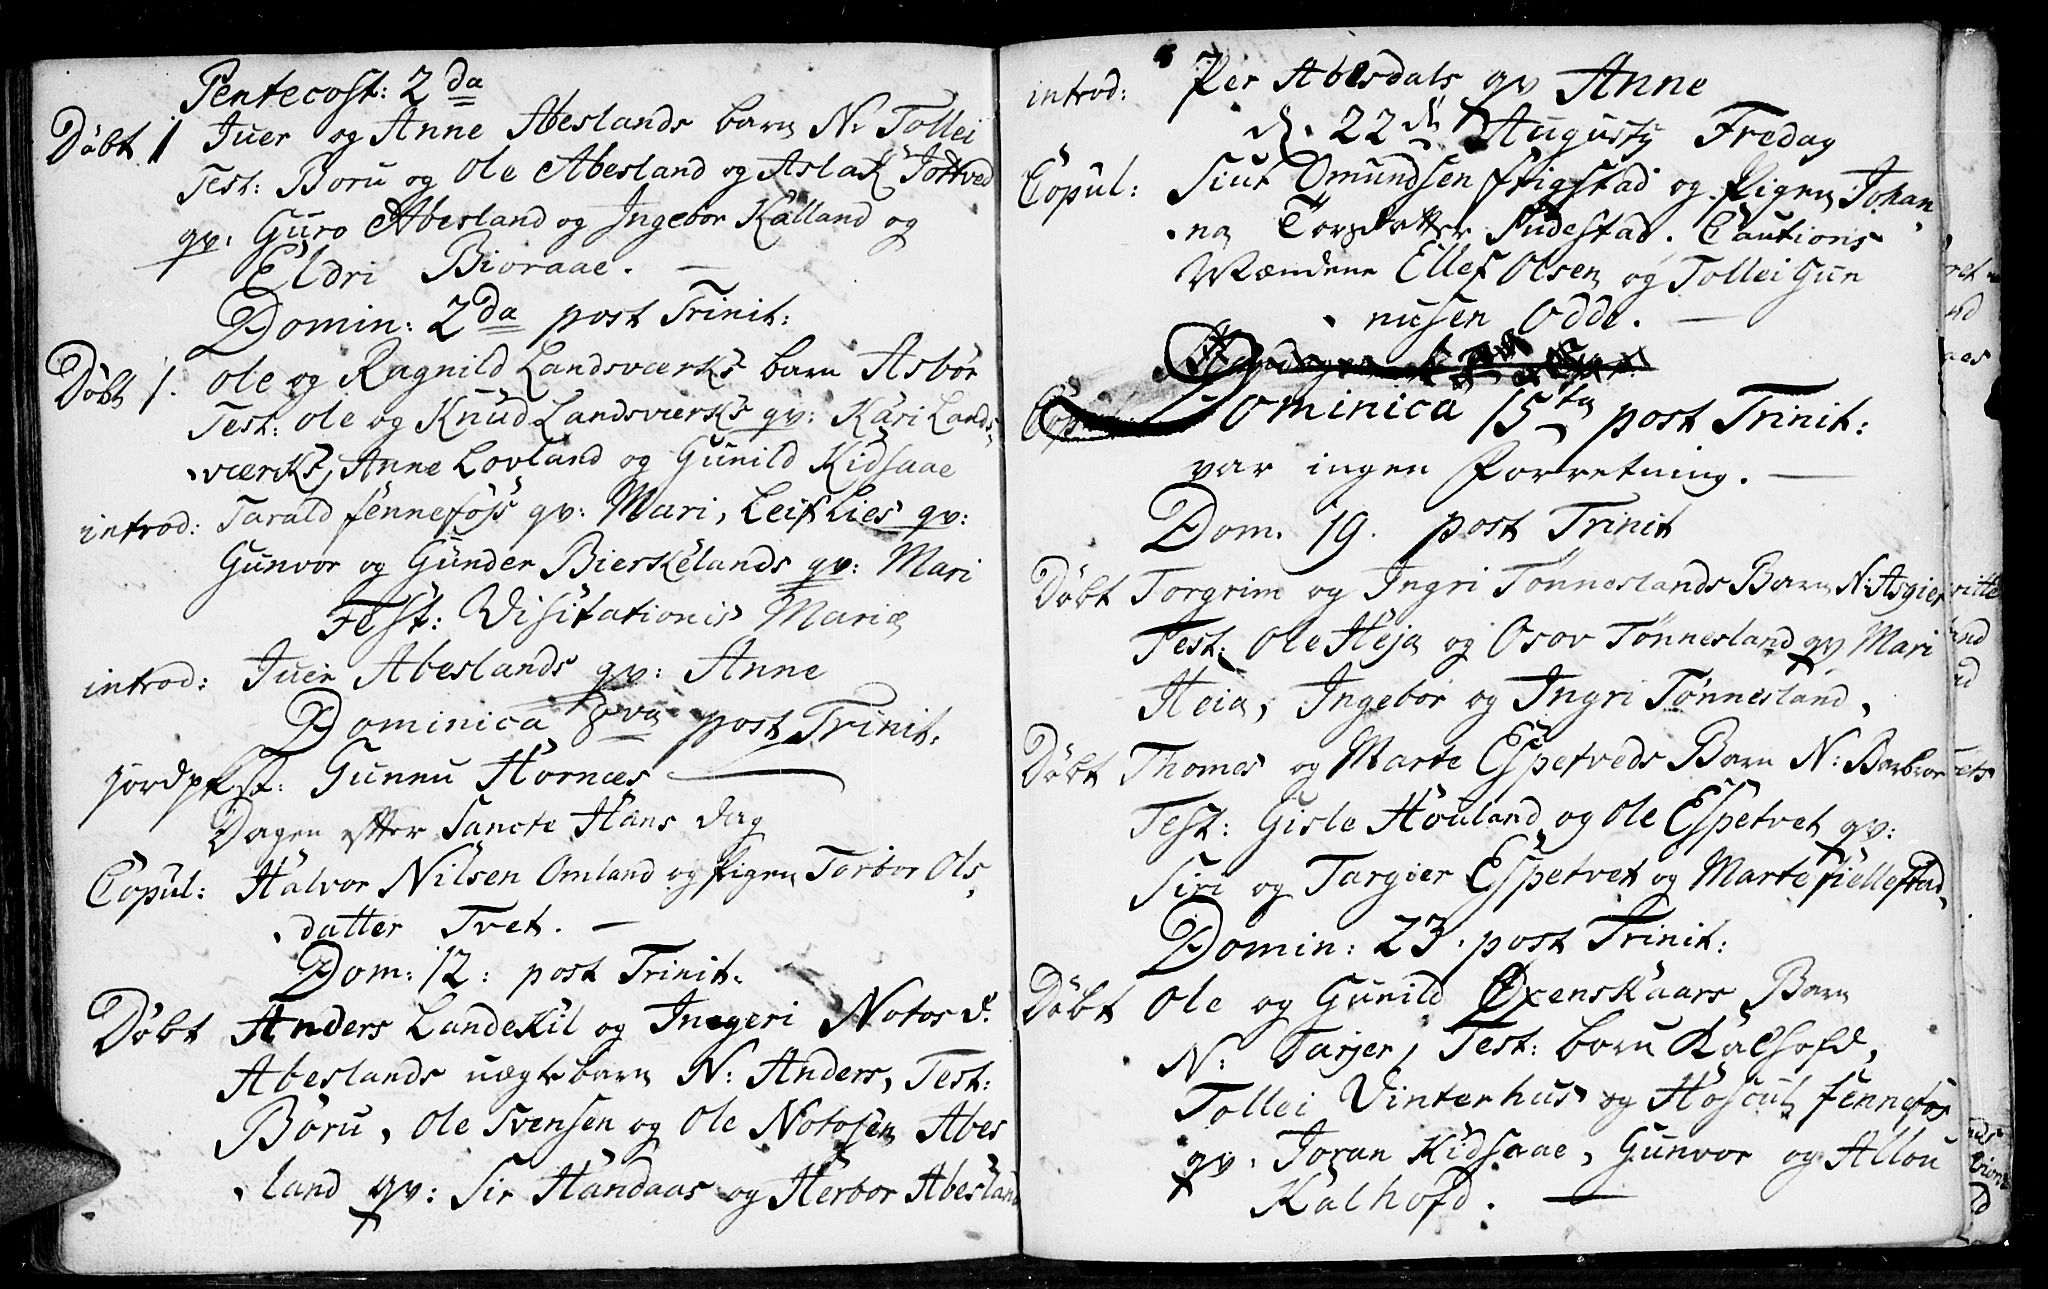 Pentecost: 2da
Döbt 1 Iuer og Anne Abeslands barn N. Tollei
Test: Boru og Ole Abesland og Aslak Jottved
qv: Guro Abesland og Ingebor Kalland og
Eldri Bioraae. —
Domin: 2da post Trinit:
Döbt 1. Ole og Ragnild Landsværks barn Asbör
Test: Ole og Knud Landsværks qv: Kari Lands-
værks, Anne Lovland og Gunild Kidsaae
introd: Tarald fennefös qv: Mari, Leif Lies qv:
Gunvor og Gunder Bierkelands qv: Mari
Fest: Visitationis Mariæ
introd: Iuer Abeslands qv: Anne
Dominica 8va post Trinit.
jordpkst: Gunnu Hornæs —
Dagen efter Sancte Hans dag
Copul: Halvor Nilsen Omland og pigen Torbor Ols
datter Tvet. —
Dom: 12: post Trinit.
Döbt Anders Landekil og Ingeri Notos d.
Abeslands uægte barn N: Anders, Test:
Böru, Ole Svensen og Ole Notosen Abes
land qv: Sir Handaas og Herbor Abesland
introd: Per Abesdals qv Anne
d. 22de Augusty Fredag
Copul: Siur Omundsen frigstad og Pigen Johan
na Torsdatter Rudestad. Cautions
Mændene Ellef Olsen og Tollei Gun
nusen Odde. —
Dominica 15ta post Trinit:
var ingen Forretning. —
Dom. 19. post Trinit
Döbt Torgrim og Ingri Tonneslands Barn N: Asgier
Test: Ole Heja og Osov Tönnesland qv Mari
Heia, Ingebor og Ingri Tönnesland,
Döbt Thomes og Marte Espetveds Barn N: Barbror
Test: Gisle Houland og Ole Espetvet qv:
Siri og Targier Espetvet og Marte fiellestad
Domin: 23. post Trinit:
Döbt Ole og Gunild Oxenskaars Barn
N: Tarjer, Test: boru Kalhofd,
Tollei Vinterhus og Hoscul fennefos
qv. Joran Kidsaae, Gunvor og Allou
Kalhofd. —